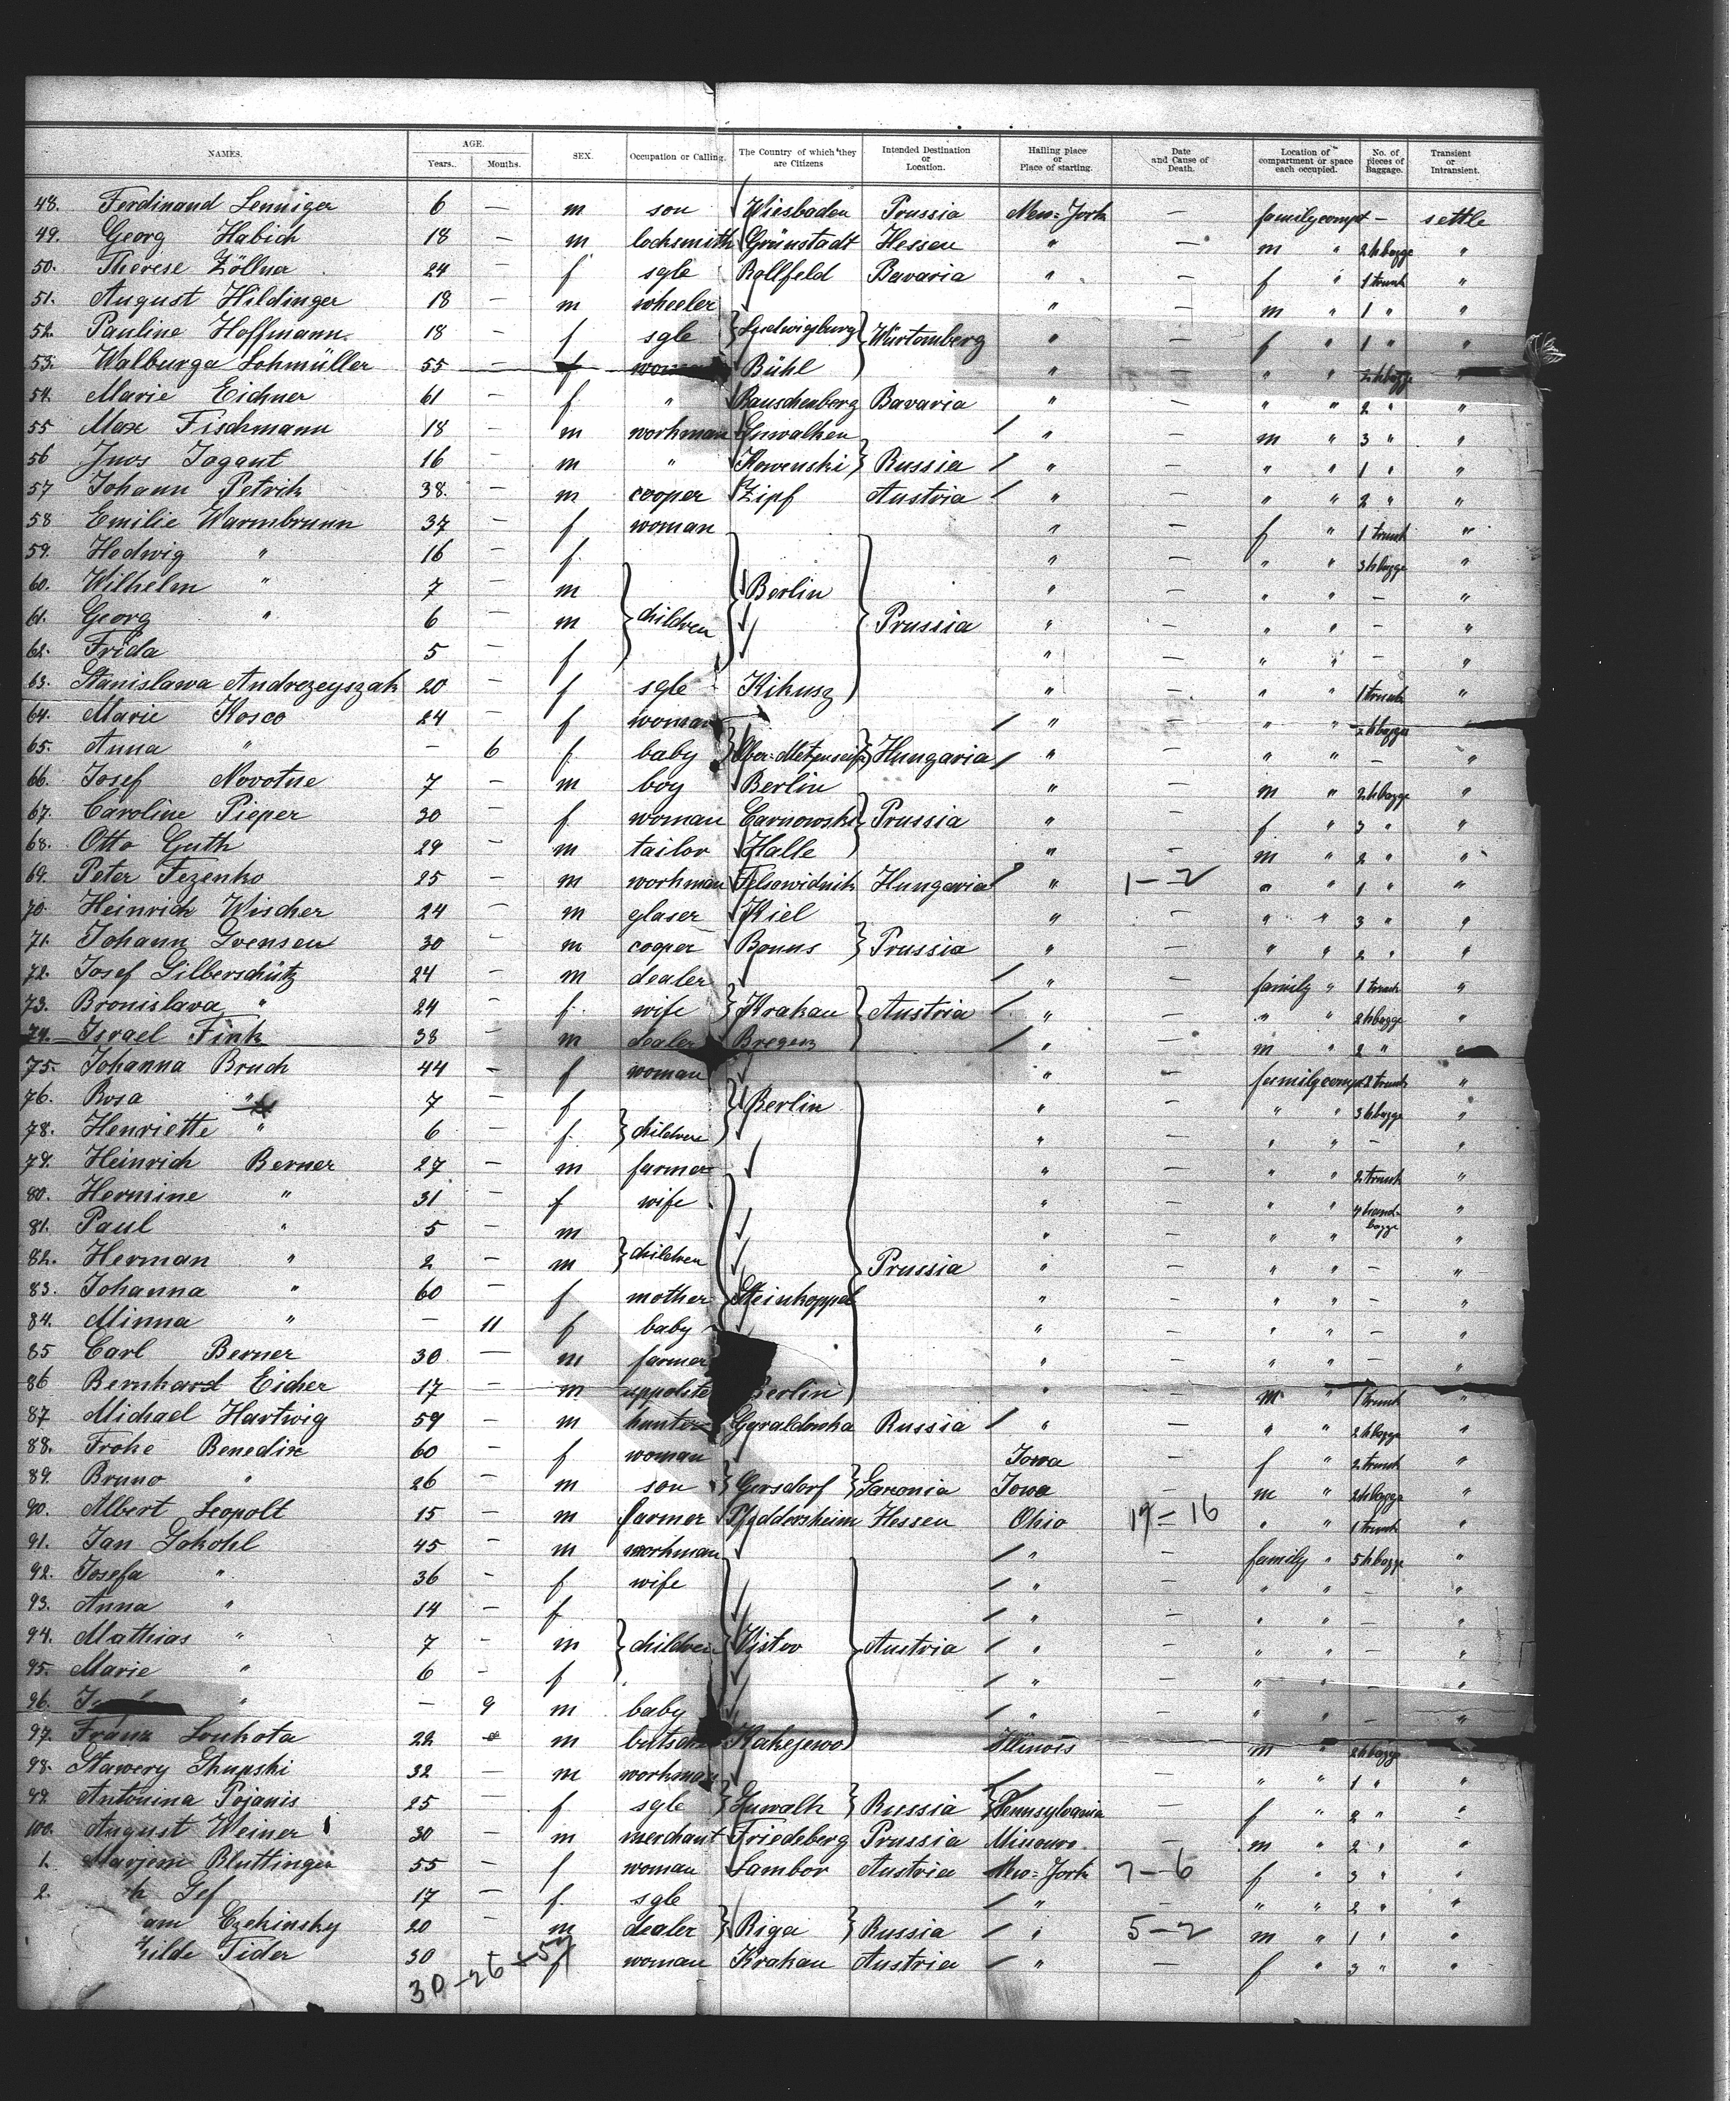 NAMES. AGE. Years. Months. SEX. Occupation or Calling. The Country of which they are Citizens Intended Destination or Location. Halling place or Place of starting. Date and Cause of Death. Location of compartment or space each occupied. No. of pieces of Baggage. Transient or Intransient.
48. Ferdinand Lenniger 6 — m son Wiesbaden Prussia New-York — family compt — settle
49. Georg Habich 18 — m locksmith Grünstadt Hessen " — m " 2 hbagge "
50. Therese Zöllner 24 — f sgle Rollfeld Bavaria " — f " 1 trunk "
51. August Hildinger 18 — m wheeler " — m " 1 " "
52. Pauline Hoffmann 18 — f sgle } Ludwigsburg } Würtemberg " — f " 1 " "
53. Walburga Lohmüller 55 — f woman Bühl " — " " 2 hbagge "
54. Marie Eichner 61 — f " Rauschenberg Bavaria " — " " 2 " "
55 Max Fischmann 18 — m workman Suwalken / " — m " 3 " "
56 Jnos Jogaut 16 — m " Kowenski } Russia / " — " " 1 " "
57 Johann Petrik 38. — m cooper Zipf Austria / " — " " 2 " "
58 Emilie Warmbrunn 37 — f woman " — f " 1 trunk "
59. Hedwig " 16 — f. " — " " 3 hbagge "
60. Wilhelm " 7 — m Berlin " — " " — "
61. Georg " 6 — m } children Prussia " — " " — "
62. Frida 5 — f " — " " — "
63. Stanislawa Andrezeyszak 20 — f sgle Kikusz " — " " 1 trunk "
64. Marie Kosco 24 — f woman / " — " " hbagge "
65. Anna " — 6 f baby } Ober-Metzenseif } Hungaria / " — " " — "
66. Josef Novotne 7 — m boy Berlin " — m " 2 hbagge "
67. Caroline Pieper 30 — f woman Carnowski } Prussia " — f " 3 " "
68. Otto Guth 29 — m tailor Halle " — m " 2 " "
69. Peter Fezenko 25 — m workman Felsowidnik Hungaria " 1—2 " " 1 " "
70. Heinrich Wischer 24 — m glaser Kiel " — " " 3 " "
71. Johann Svensen 30 — m cooper Bonns } Prussia " — " " 2 " "
72. Josef Silberschütz 24 — m dealer / " — family " 1 trunk "
73. Bronislava " 24 — f. wife } Krakau } Austria / " — " " 2 hbagge "
74. Israel Fink 38 — m dealer Bregenz / " — m " 2 " "
75. Johanna Bruch 44 — f woman " — family compt 2 trunk "
76. Rosa " 7 — f Berlin " — " " 3 hbagge "
78. Henriette " 6 — f. } children " — " " — "
79. Heinrich Berner 27 — m farmer " — " " 2 trunk "
80. Hermine " 31 — f wife " — " " 4 hand-bagge "
81. Paul " 5 — m " — " " "
82. Herman " 2 — m } children Prussia " — " " — "
83. Johanna " 60 — f mother Steinkoppel " — " " — "
84. Minna " — 11 f baby " — " " — "
85 Carl Berner 30 — m farmer " — " " — "
86 Bernhard Eicher 17 — m Berlin " — m " 1 trunk "
87 Michael Hartwig 59 — m hunter Gyraldowka Russia / " — " " 2 hbagge "
88. Froke Benedix 60 — f woman Iowa — f " 2 trunk "
89 Bruno " 26 — m son } Gersdorf } Saxonia Iowa — m " 2 hbagge "
90. Albert Leopolt 15 — m farmer Pfeddersheim Hessen Ohio 17—16 " " 1 trunk "
91. Jan Sokohl 45 — m workman / " — family " 5 hbagge "
92. Josefa " 36 — f wife / " — " " — "
93. Anna " 14 — f / " — " " — "
94. Mathias " 7 — m } children Vistov Austria / " — " " — "
95. Marie " 6 — f / " — " " — "
96. " — 9 m baby / " — " " — "
97. Franz Loukota 22 — m Kakejewo Illinois — m " 2 hbagge "
98. Stawery Skupski 32 — m workman — " " 1 " "
99. Antonina Pojanis 25 — f sgle } Suwalk } Russia } Pennsylvania — f " 2 " "
100. August Weiner 30 — m merchant Friedeberg Prussia Missouri — m " 2 " "
1. Marjem Bluttinger 55 — f woman Sambor Austria New-York 7—6 f " 3 " "
2. Gef 17 — f. sgle / " — " " 2 " "
am Czekinsky 20 — m dealer } Riga } Russia / " 5—2 m " 1 " "
hilde Tider 30 f woman Krakau Austria / " — f " 3 " "
30—26—57